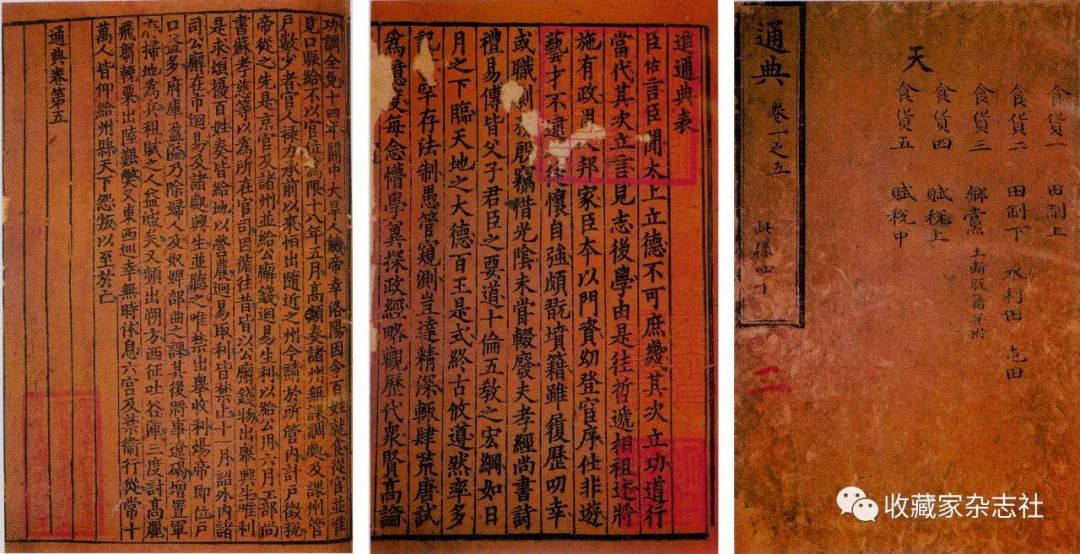 通典 卷一之五
天
食貨一 田制上
食貨二 田制下 水利田 屯田
食貨三 鄉黨 土斷版籍等附
食貨四 賦稅上
食貨五 賦稅中
此樣四
進通典表
臣佑言臣聞太上立德不可庶幾其次立功道行
當代其次立言見志後學由是往哲遞相祖述將
施有政用邦家臣本以門資幼登官序仕非遊
藝才不逮徒懷自強頗翫墳籍雖履歷叨幸
或職劇殷竊惜光陰未嘗輟廢夫孝經尚書詩
禮易傳皆父子君臣之要道十倫五教之宏綱如日
月之下臨天地之大德百王是式終古攸遵然率多
記罕存法制愚管窺測豈達精深輒肆荒唐試
為憶度每念懵學冀探政經略觀歷代衆賢高論
功調全免十四年關中大旱人饑帝幸洛陽因令百姓就食從官並准
見口賑給不以官位為限十八年五月高熲奏諸州無課調處及課州管
戶數少者官人祿力承前以來恒出隨近之州今請於所管內計戶徵稅
帝從之先是京官及諸州並給公廨錢迴易生利以給公用六月工部尚
書蘇孝慈等以為所在官司因循往昔皆以公廨錢物出舉興生唯利
是求煩擾百姓奏皆給地以營農迴易取利皆禁止十一月詔外內諸
司公廨在市迴易及諸處興生並聽之唯禁出舉收利煬帝即位戶
口益多府庫盈溢乃除婦人及奴婢部曲之課其後將事遼碣增置軍
府掃地為兵租賦之人益減矣又頻出朔方西征吐谷渾三度討高麗
飛芻輓粟水陸艱弊又東西巡幸無時休息六宮及禁衛行從常十
萬人皆仰給州縣天下怨叛以至於亡
通典卷第五
收藏家杂志社